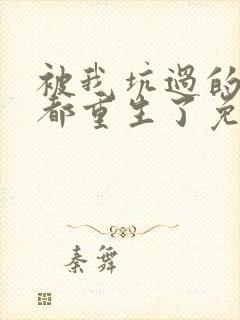 被我坑过的
都重生了免
秦舞